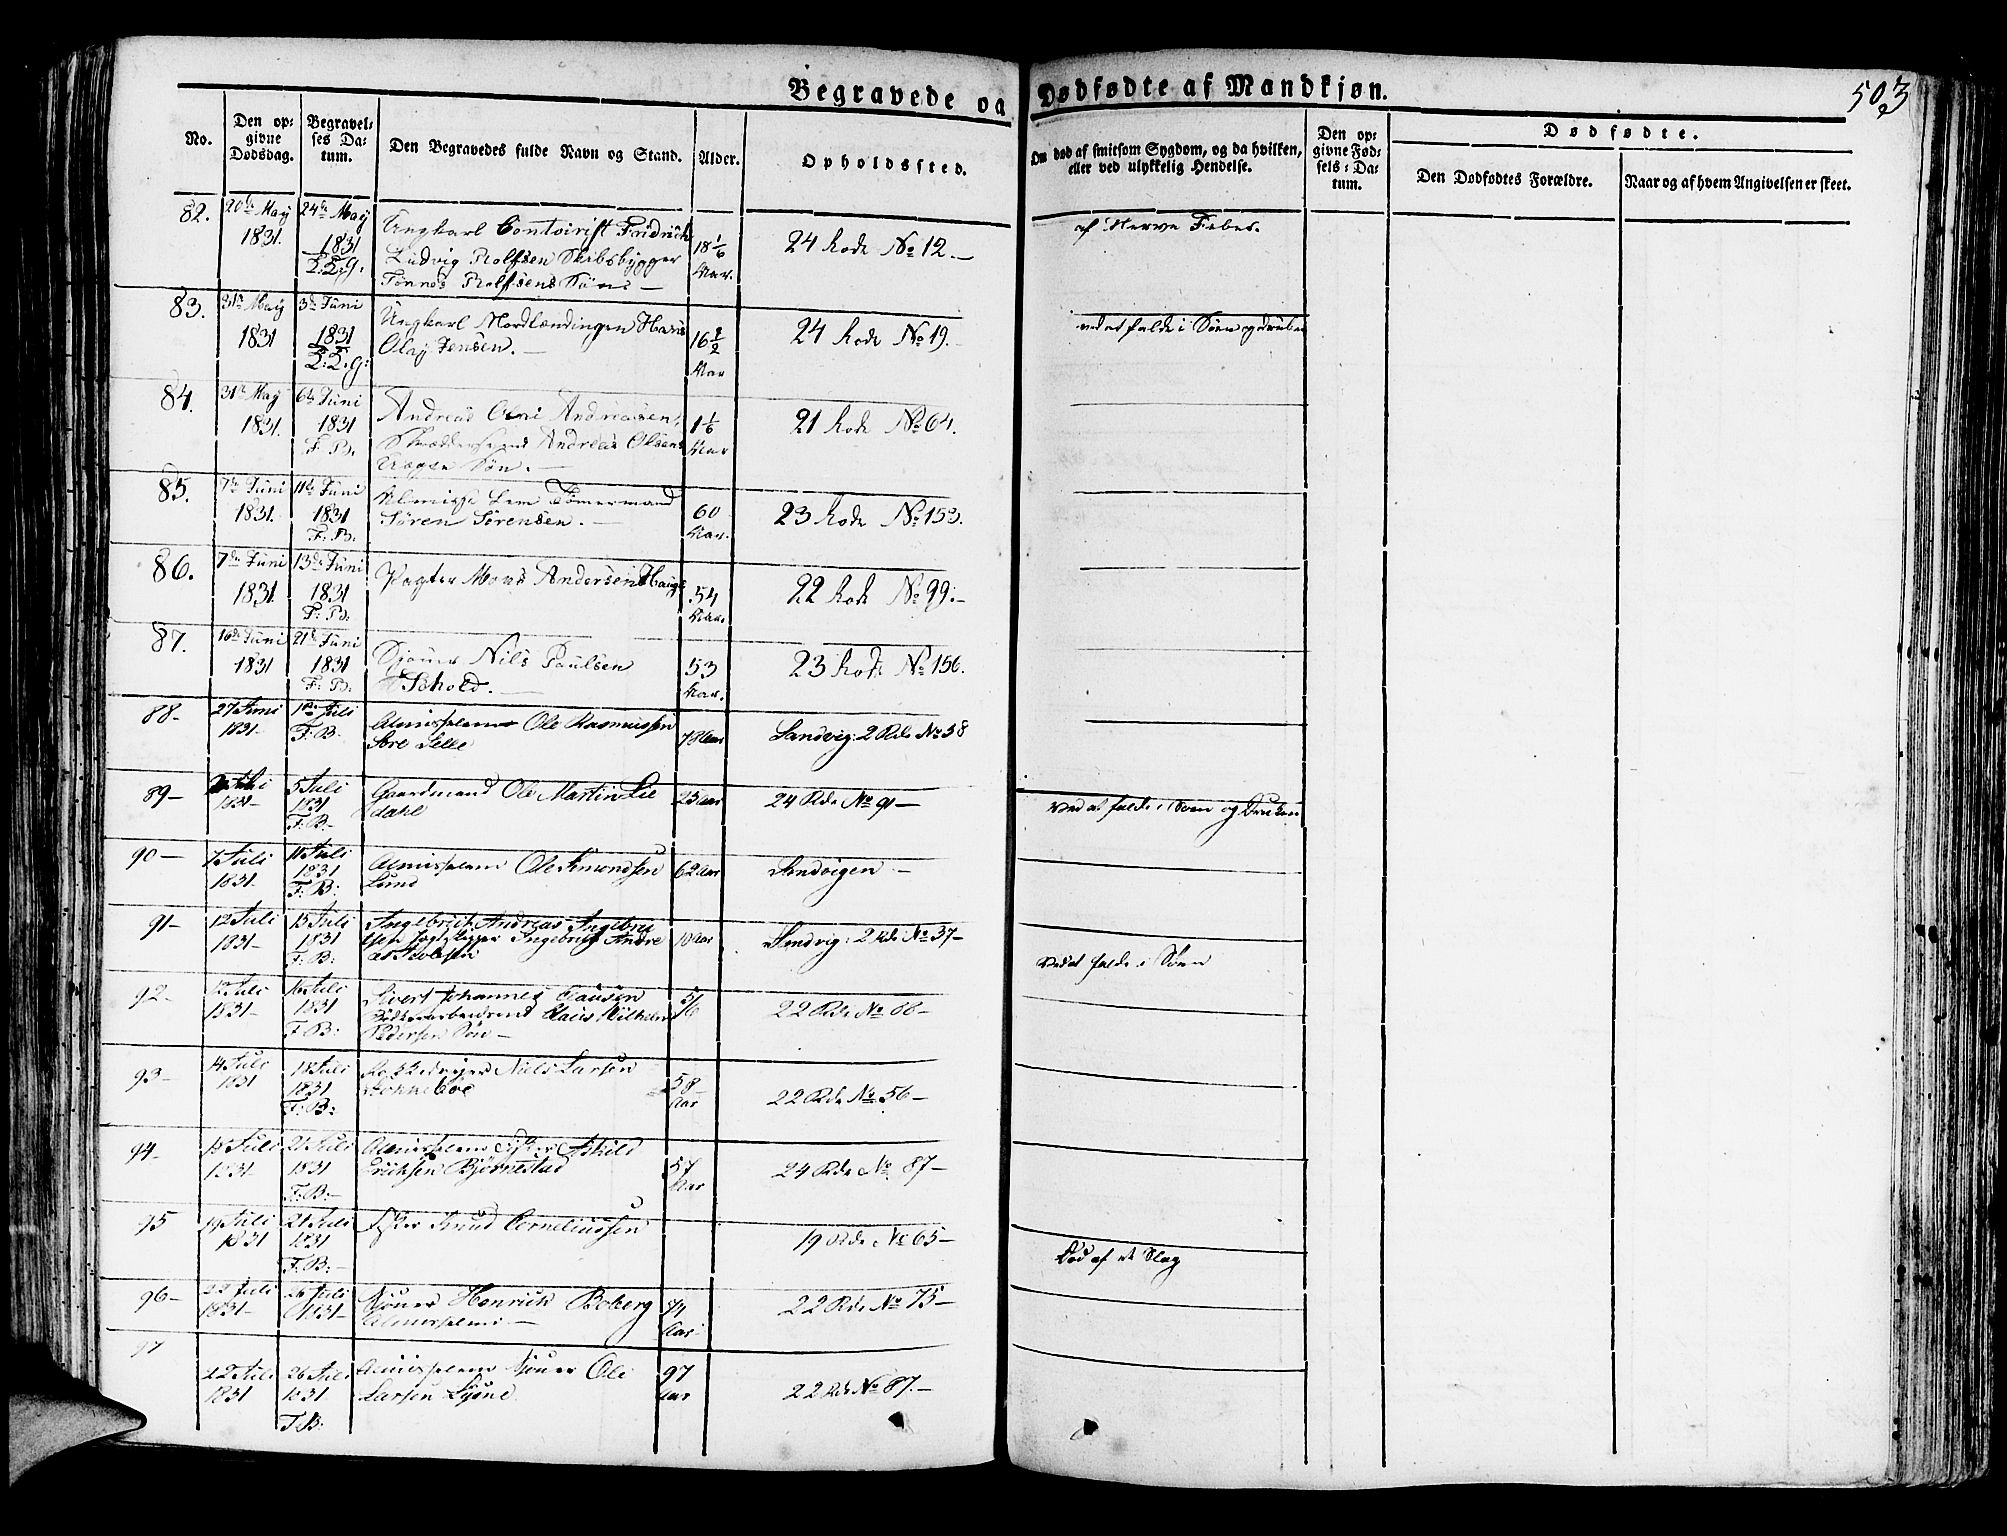 Begravede og Dødfødte af Mandkjøn.
503
No.
Den opgivne Dødsdag.
Begravelses Datum.
Den Begravedes fulde Navn og Stand.
Alder.
Opholdssted.
Om død af smitsom Sygdom, og da hvilken, eller ved ulykkelig Hendelse.
Den opgivne Fødsels-Datum.
Dødfødte.
Den Dødfødtes Forældre.
Naar og af hvem Angivelsen er skeet.
82. 20de May 1831. 24de May 1831
Ungkarl Contoirist Fridrich
Ludvig Rolfsen Skibsbygger
Tønnes Rolfsens Søn
18 1/6 Aar.
24 Rode No 12.
af Nerve Feber.
83. 31te May 1831 3die Juni 1831
Ungkarl Nordlændingen Hans
Olai Jensen.
16 1/2 Aar
24 Rode No 19.
ved at falde i Søen og druknet
84. 31te May 1831. 6te Juni 1831 F. B.
Andreas Andreassen,
Andreas Olsens
Søn.
1 1/6 Aar
21 Rode No 64.
85. 7de Juni 1831. 11te Juni 1831 F. B.
Almisse Lem Tømermand
Søren Sørensen.
60 Aar.
23 Rode No 153.
86. 7de Juni 1831. 13de Juni 1831 F. B.
Vægter Mons Andersen Hauge
54 Aar.
22 Rode No 99.
87. 16de Juni 1831 21de Juni 1831 F. B.
Sjouer Nils Paulsen
53 Aar.
23 Rode No 156.
88- 27 Juni 1831- 1ste Juli F. B-
Almisselem Ole Rasmussen
78 Aar
Sandvig: 2 Rode No 58
89- 1831- 5 Juli 1831 F. B-
Gaardmand Ole Martin Lie
dahl
25 Aar
24 Rode No 91-
Ved at falde i Søen og Druknet
90- 7 Juli 1831- 11 Juli 1831 F. B:
Almisselem Ole Simondsen
Lund
62 Aar
Sandvigen -
91- 12 Juli 1831- 15 Juli 1831 F. B:
Ingebrigt Andreas Ingebrig
tsen Ingebrigt Andre
as
10 Aar
Sandvig: 2 Rode No 37-
Ved at falde i Søen
92- 1831- 16 Juli 1831 F. B:
Sivert Johannes Clausen
Claus Wilhelm
Pedersen Søn-
5/6
22 Rode No 88-
93- 14 Juli 1831 18 Juli 1831 F. B:
Niels Larsen
58 Aar
22 Rode No 56-
94- 18 Juli 1831- 21 Juli 1831 F. B:-
Almisselem Fisker Askild
Eriksen Bjørnestad
57 Aar
24 Rode No 87-
95 19 Juli 1831 21 Juli 1831 F. B:-
Fisker Knud Corneliussen
19 Rode No 65-
Død af et Slag
96- 22 Juli 1831- 26 Juli 1831-
Sjouer Henrick Boberg
Almisselem-
74 Aar
22 Rode No 75-
97 22 Juli 1831 26 Juli 1831 F. B:
Almisselem Sjouer Ole
Larsen
97 Aar
22 Rode No 87.-